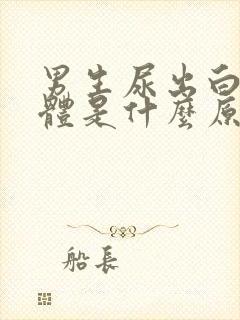 男生尿出白
體是什麼原
船長